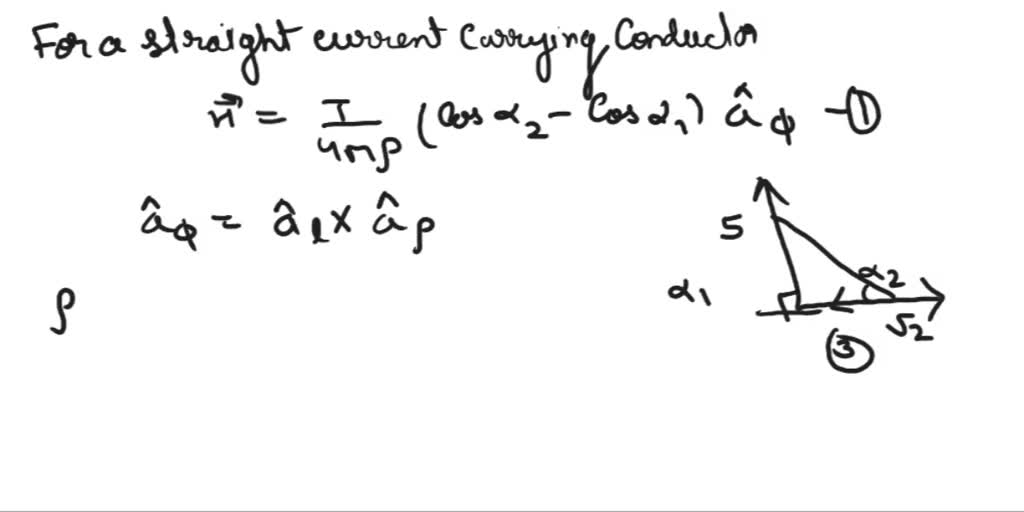 For a straight current Carrying Conductor
H⃗ = I/4πρ (Cos α₂ - Cos α₁) â_ϕ -①
â_ϕ = â_l × â_ρ
5
α₂
α₁
√2
③
ρ